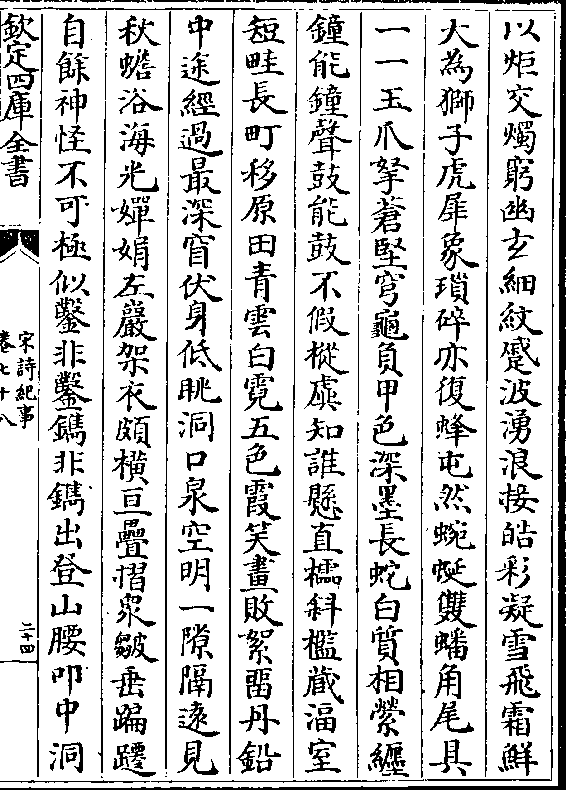 以炬交燭窮幽玄細紋蹙波湧浪接皓彩凝雪飛霜鮮
大為獅子虎犀象瑣碎亦復蜂屯然蜿蜒雙蟠角尾具
一一玉爪拏蒼堅穹龜負甲色深墨長蛇白質相縈纒
鐘能鐘聲鼓能鼓不假樅虡知誰懸直櫺斜檻蔵湢室
短畦長町移原田青雲白霓五色霞笑畫敗絮留丹鉛
中途經過最深窅伏身低眺洞口泉空明一隙隔遠見
秋蟾浴海光嬋娟左巖架衣頗横亘疊摺衆皺垂蹁躚
自餘神怪不可極似鑿非鑿鐫非鐫出登山腰叩中洞
欽定四庫全書
宋詩紀事
卷七十八
二十四